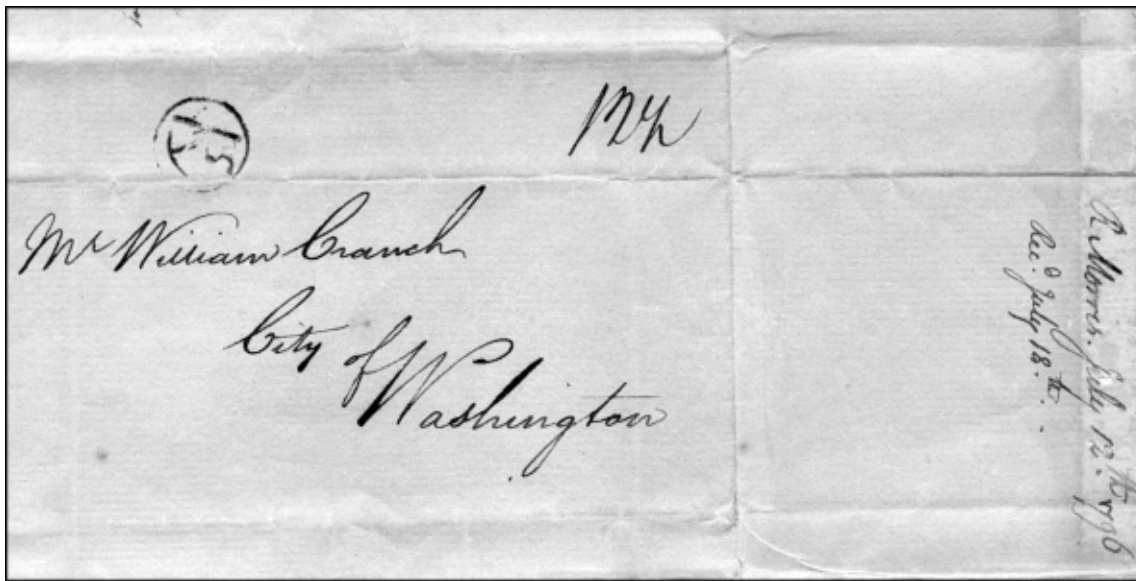 12½
Mr William Cranch
City of
Washington
R. Morris. July 12.th 1796
Rec.d July 18.th.